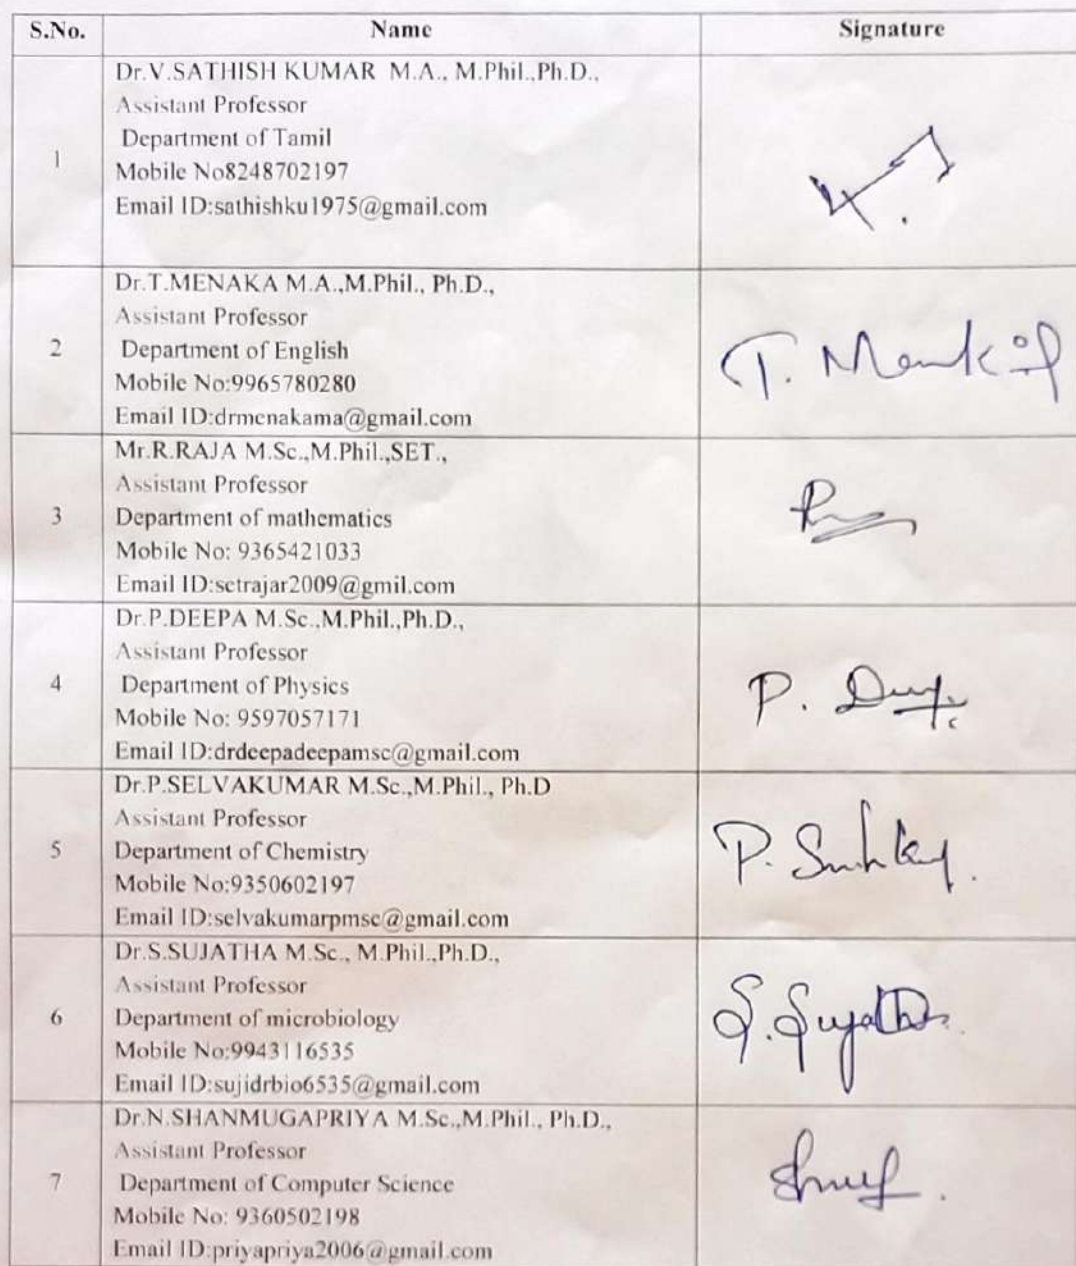 S.No. Name Signature
1
Dr.V.SATHISH KUMAR M.A., M.Phil.,Ph.D.,
Assistant Professor
Department of Tamil
Mobile No8248702197
Email ID:sathishku1975@gmail.com
2
Dr.T.MENAKA M.A.,M.Phil., Ph.D.,
Assistant Professor
Department of English
Mobile No:9965780280
Email ID:drmenakama@gmail.com
T.
3
Mr.R.RAJA M.Sc.,M.Phil.,SET.,
Assistant Professor
Department of mathematics
Mobile No: 9365421033
Email ID:setrajar2009@gmil.com
4
Dr.P.DEEPA M.Sc.,M.Phil.,Ph.D.,
Assistant Professor
Department of Physics
Mobile No: 9597057171
Email ID:drdeepadeepamsc@gmail.com
P.
5
Dr.P.SELVAKUMAR M.Sc.,M.Phil., Ph.D
Assistant Professor
Department of Chemistry
Mobile No:9350602197
Email ID:selvakumarpmsc@gmail.com
P.
6
Dr.S.SUJATHA M.Sc., M.Phil.,Ph.D.,
Assistant Professor
Department of microbiology
Mobile No:9943116535
Email ID:sujidrbio6535@gmail.com
S. Sujatha
7
Dr.N.SHANMUGAPRIYA M.Sc.,M.Phil., Ph.D.,
Assistant Professor
Department of Computer Science
Mobile No: 9360502198
Email ID:priyapriya2006@gmail.com